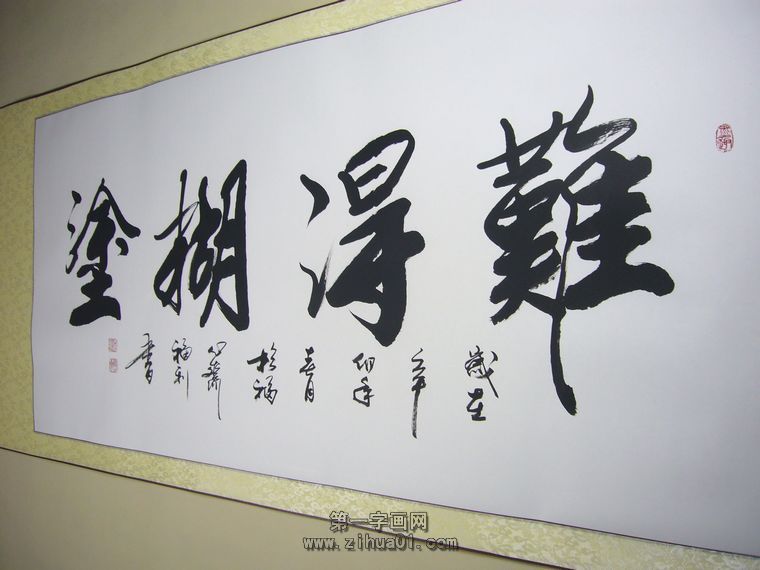 難得糊塗
歲在
辛
卯年
春月
於福
心齋
福利
書
第一字画网
www.zihua01.com